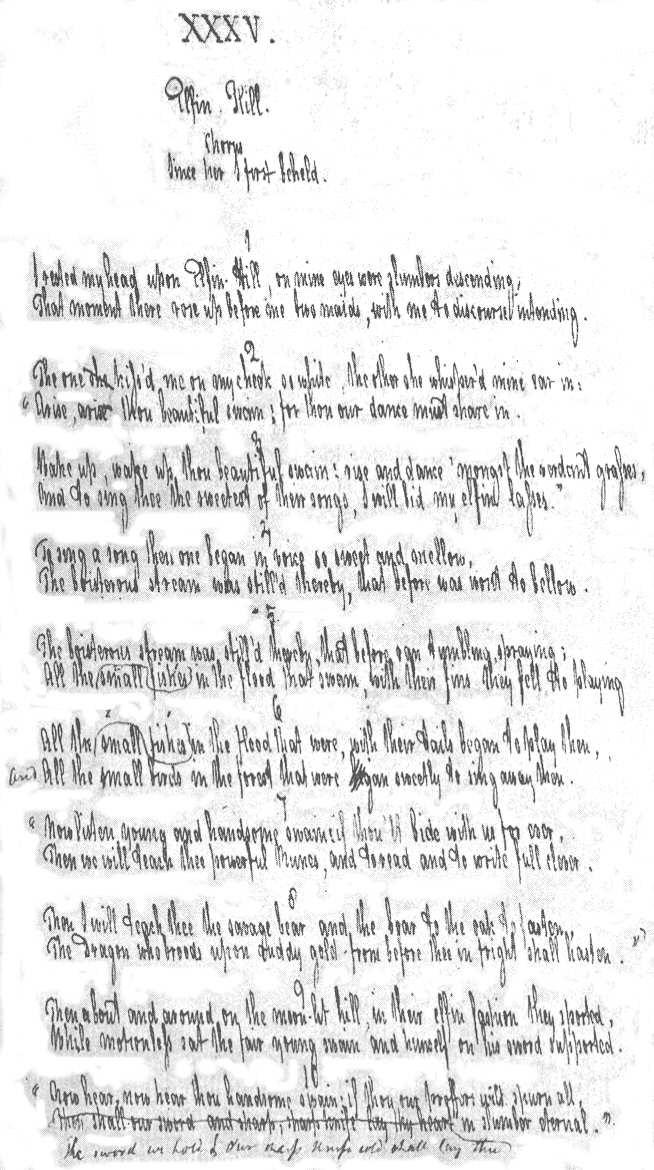 XXXV.
Elfin Hill.
Chorus
Since her I first beheld.
1
I rested my head upon Elfin-Hill, on mine eyes were slumbers descending,
That moment there rose up before me two maids, with me to discourse intending.
2
The one she kiss'd me on my cheek so white, the other she whisper'd mine ear in:
"Arise, arise thou beautiful swain! for thou our dance must share in.
3
Wake up, wake up, thou beautiful swain! rise and dance 'mongst the verdant grasses,
And to sing thee the sweetest of their songs, I will bid my elfin lasses."
4
To sing a song then one began in voice so sweet and mellow,
The boisterous stream was still'd thereby, that before was wont to bellow.
5
The boisterous stream was still'd thereby, that before ran tumbling, spraying;
All the small fishes in the flood that swam, with their fins they fell to playing
6
All the small fishes in the flood that were, with their tails began to play then,
and All the small birds in the forest that were began sweetly to sing away then.
7
"Now listen young and handsome swain! if thou'lt bide with us for ever,
Then we will teach thee powerful Runes, and to read and to write full clever.
8
Then I will teach thee the savage bear and the boar to the oak to fasten,
The Dragon who broods upon ruddy gold from before thee in fright shall hasten."
9
Then about and around on the moon-lit hill, in their elfin fashion they sported,
While motionless sat the fair young swain and himself on his sword supported.
10
"Now hear, now hear thou handsome swain; if thou our proffers wilt spurn all,
Then shall our sword and sharp, sharp knife lay thy heart in slumber eternal."
The sword we hold & our sharp knife cold shall lay thee